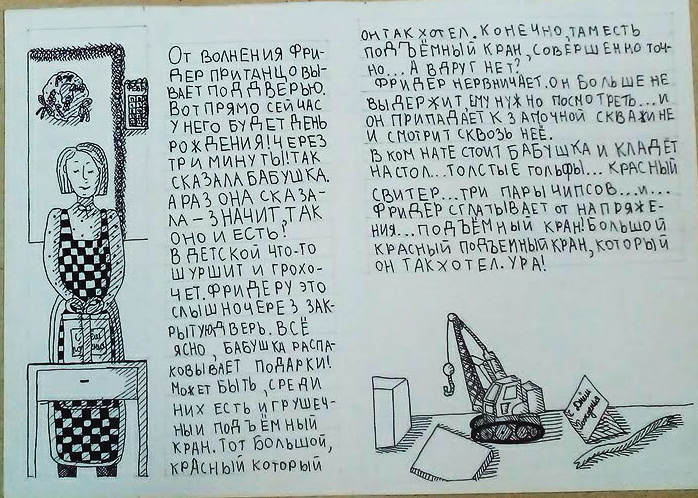 От волнения Фри-
дер пританцовы-
вает под дверью.
Вот прямо сейчас
у него будет день
рождения! Через
три минуты! Так
сказала бабушка.
А раз она сказа-
ла – значит, так
оно и есть!
В детской что-то
шуршит и грохо-
чет. Фридеру это
слышно через зак-
рытую дверь. Всё
ясно, бабушка распа-
ковывает подарки!
Может быть, среди
них есть игрушеч-
ный подъёмный
кран. Тот большой,
красный который
он так хотел. Конечно, там есть
подъёмный кран, совершенно точ-
но... А вдруг нет?
Фридер нервничает. Он больше не
выдержит ему нужно посмотреть... и
он припадает к замочной скважине
и смотрит сквозь неё.
В комнате стоит бабушка и кладёт
на стол... толстые гольфы... красный
свитер... три пары чипсов... и...
Фридер сглатывает от напряже-
ния... подъёмный кран! Большой
красный подъемный кран, который
он так хотел. Ура!
С Днём
рождения